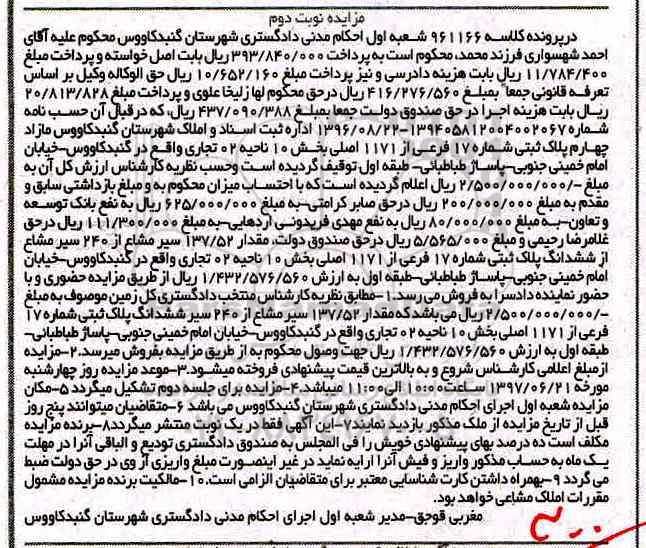 مزایده نوبت دوم
در پرونده کلاسه ۹۶۱۱۶۶ شعبه اول احکام مدنی دادگستری شهرستان گنبدکاووس محکوم علیه آقای
احمد شهسواری فرزند محمد، محکوم است به پرداخت ۳۹۳/۸۴۰/۰۰۰ ریال بابت اصل خواسته و پرداخت مبلغ
۱۱/۷۸۴/۴۰۰ ریال بابت هزینه دادرسی و نیز پرداخت مبلغ ۱۰/۶۵۲/۱۶۰ ریال حق الوکاله وکیل بر اساس
تعرفه قانونی جمعا" بمبلغ ۴۱۶/۲۷۶/۵۶۰ ریال درحق محکوم لها زلیخا علوی و پرداخت مبلغ ۲۰/۸۱۳/۸۲۸
ریال بابت هزینه اجرا در حق صندوق دولت جمعا بمبلغ ۴۳۷/۰۹۰/۳۸۸ ریال، که درقبال آن حسب نامه
شماره ۱۳۹۴۰۵۸۱۲۰۰۴۰۰۲۰۶۷-۱۳۹۶/۰۸/۲۲ اداره ثبت اسناد و املاک شهرستان گنبدکاووس مازاد
چهارم پلاک ثبتی شماره ۱۷ فرعی از ۱۱۷۱ اصلی بخش ۱۰ ناحیه ۰۲ تجاری واقع در گنبدکاووس-خیابان
امام خمینی جنوبی-پاساژ طباطبائی- طبقه اول توقیف گردیده است وحسب نظریه کارشناس ارزش کل آن به
مبلغ -/۲/۵۰۰/۰۰۰/۰۰۰ ریال اعلام گردیده است که با احتساب میزان محکوم به و مبلغ بازداشتی سابق و
مقدم به مبلغ ۲۰۰/۰۰۰/۰۰۰ ریال درحق صابر کرامتی-به مبلغ ۶۲۵/۰۰۰/۰۰۰ ریال به نفع بانک توسعه
و تعاون-به مبلغ ۸۰/۰۰۰/۰۰۰ ریال به نفع مهدی فریدونی آردهایی-به مبلغ ۱۱۱/۳۰۰/۰۰۰ ریال درحق
غلامرضا رحیمی و مبلغ ۵/۵۶۵/۰۰۰ ریال درحق صندوق دولت، مقدار ۱۳۷/۵۲ سیر مشاع از ۲۴۰ سیر مشاع
از ششدانگ پلاک ثبتی شماره ۱۷ فرعی از ۱۱۷۱ اصلی بخش ۱۰ ناحیه ۰۲ تجاری واقع در گنبدکاووس-خیابان
امام خمینی جنوبی-پاساژ طباطبائی-طبقه اول به ارزش ۱/۴۳۲/۵۷۶/۵۶۰ ریال از طریق مزایده حضوری و با
حضور نماینده دادسرا به فروش می رسد.۱-مطابق نظریه کارشناس منتخب دادگستری کل زمین موصوف به مبلغ
-/۲/۵۰۰/۰۰۰/۰۰۰ ریال می باشد که مقدار ۱۳۷/۵۲ سیر مشاع از ۲۴۰ سیر ششدانگ پلاک ثبتی شماره ۱۷
فرعی از ۱۱۷۱ اصلی بخش ۱۰ ناحیه ۰۲ تجاری واقع در گنبدکاووس-خیابان امام خمینی جنوبی-پاساژ طباطبائی-
طبقه اول به ارزش ۱/۴۳۲/۵۷۶/۵۶۰ ریال جهت وصول محکوم به از طریق مزایده بفروش میرسد.۲-مزایده
ازمبلغ اعلامی کارشناس شروع و به بالاترین قیمت پیشنهادی فروخته میشود.۳-موعد مزایده روز چهارشنبه
مورخه ۱۳۹۷/۰۶/۲۱ ساعت۱۰:۰۰ الی ۱۱:۰۰ میباشد.۴-مزایده برای جلسه دوم تشکیل میگردد ۵-مکان
مزایده شعبه اول اجرای احکام مدنی دادگستری شهرستان گنبدکاووس می باشد ۶-متقاضیان میتوانند پنج روز
قبل از تاریخ مزایده از ملک مذکور بازدید نمایند۷-این آگهی فقط در یک نوبت منتشر میگردد۸-برنده مزایده
مکلف است ده درصد بهای پیشنهادی خویش را فی المجلس به صندوق دادگستری تودیع و الباقی آنرا در مهلت
یک ماه به حساب مذکور واریز و فیش آنرا ارایه نماید در غیر اینصورت مبلغ واریزی از وی در حق دولت ضبط
می گردد ۹-بهمراه داشتن کارت شناسایی معتبر برای متقاضیان الزامی است.۱۰-مالکیت برنده مزایده مشمول
مقررات املاک مشاعی خواهد بود.
مغربی قوجق-مدیر شعبه اول اجرای احکام مدنی دادگستری شهرستان گنبدکاووس